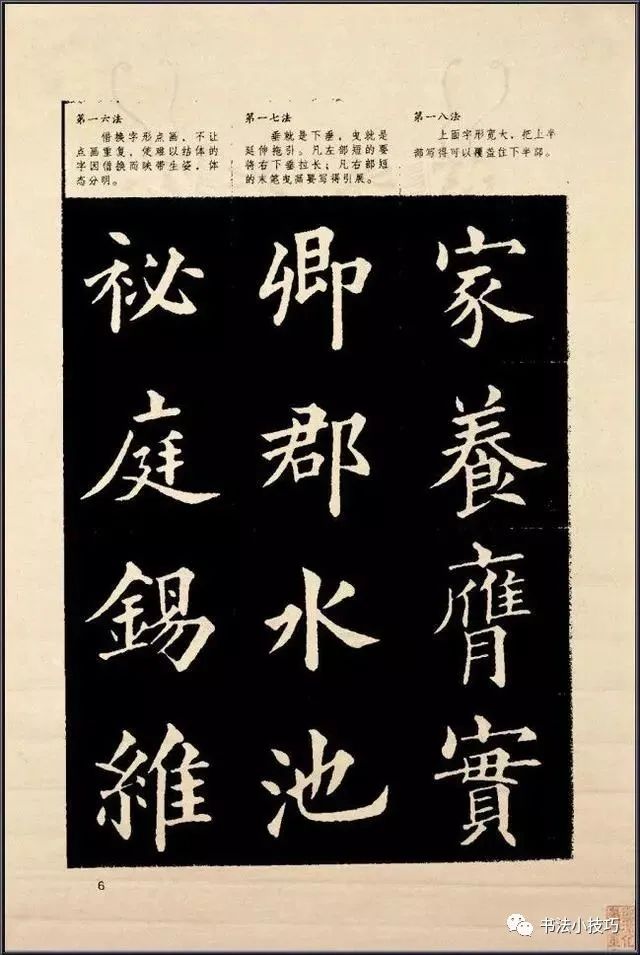 第一六法
借换字形点画，不让
点画重复，使难以结体的
字因借换而映带生姿，体
态分明。
第一七法
垂就是下垂，曳就是
延伸拖引。凡左部短的要
将右下垂拉长；凡右部短
的末笔曳要写得引展。
第一八法
上面字形宽大，把上半
部写得可以覆盖住下半部。
祕庭錫維
卿郡水池
家養膺實
6
书法小技巧